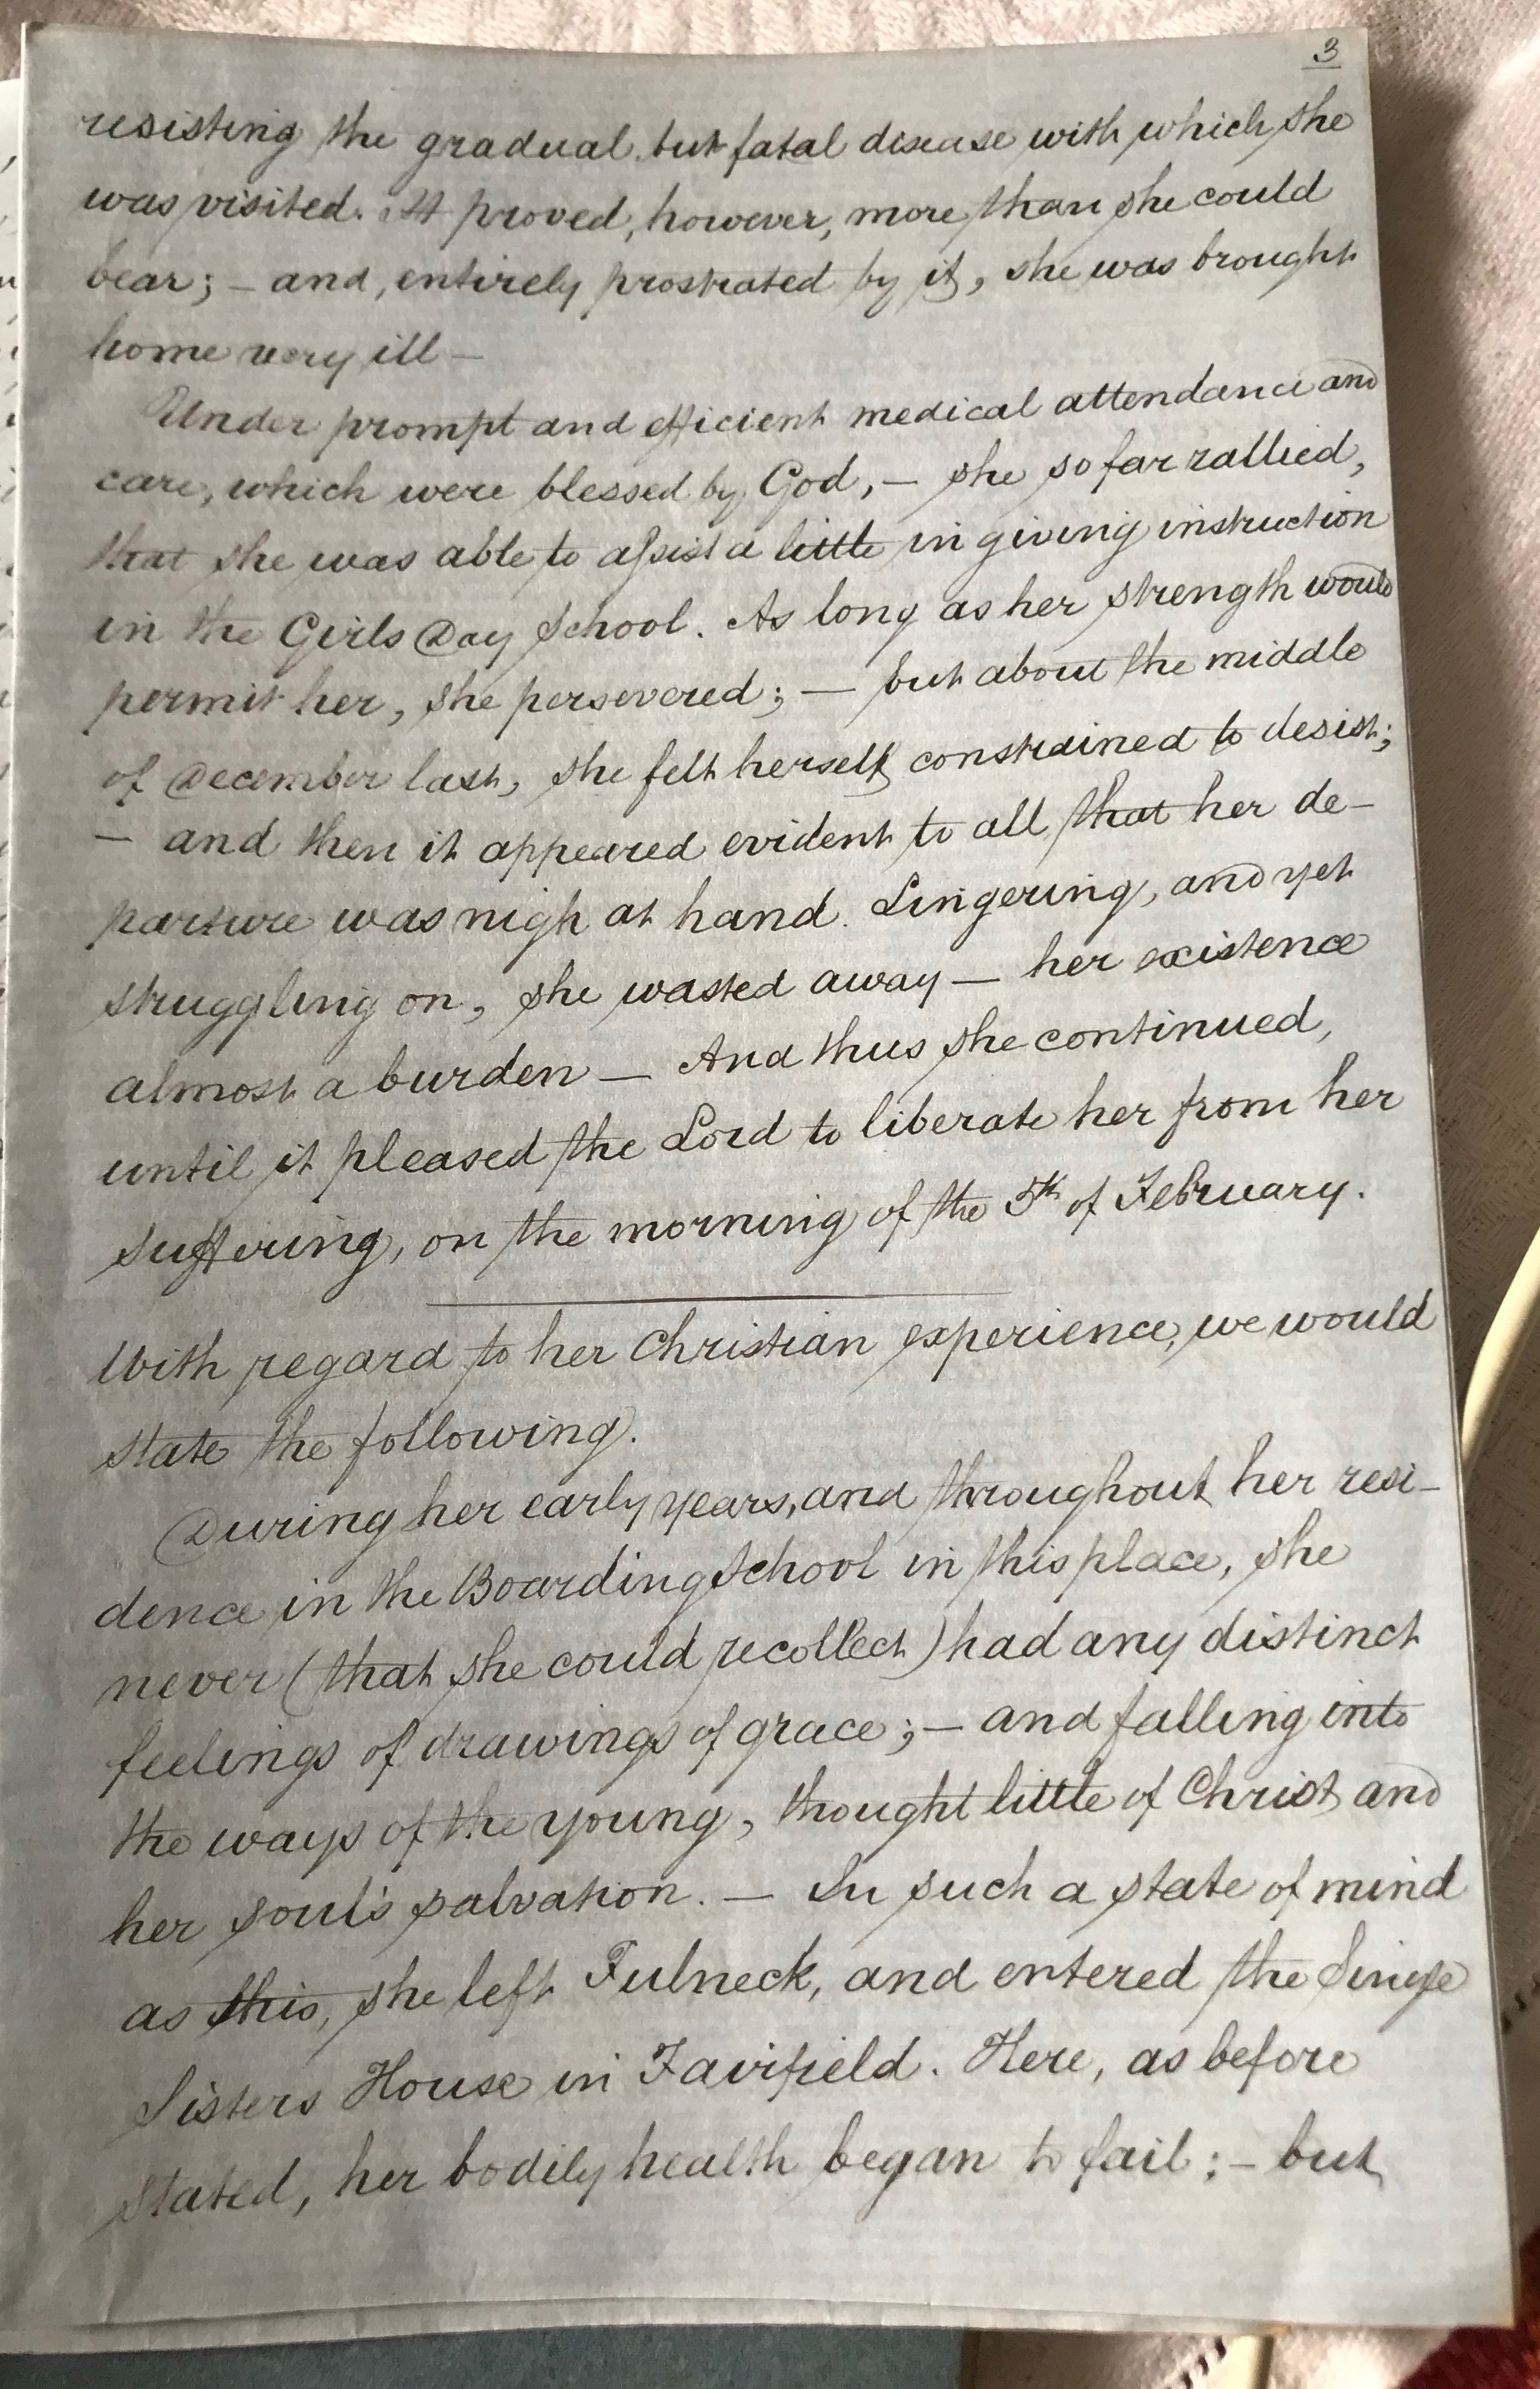 3
resisting the gradual but fatal disease with which she
was visited. It proved, however, more than she could
bear; – and, entirely prostrated by it, she was brought
home very ill –
Under prompt and efficient medical attendance and
care, which were blessed by God, – she so far rallied,
that she was able to assist a little in giving instruction
in the Girls Day School. As long as her strength would
permit her, she persevered; – but about the middle
of December last, she felt herself constrained to desist;
– and then it appeared evident to all that her de-
parture was nigh at hand. Lingering, and yet
struggling on, she wasted away – her existence
almost a burden – And thus she continued,
until it pleased the Lord to liberate her from her
suffering, on the morning of the 5th of February.
With regard to her Christian experience, we would
state the following.
During her early years, and throughout her resi-
dence in the Boarding School in this place, she
never (that she could recollect) had any distinct
feelings of drawings of grace; – and falling into
the ways of the young, thought little of Christ and
her soul's salvation. – In such a state of mind
as this, she left Fulneck, and entered the Single
Sisters House in Fairfield. Here, as before
stated, her bodily health began to fail; – but